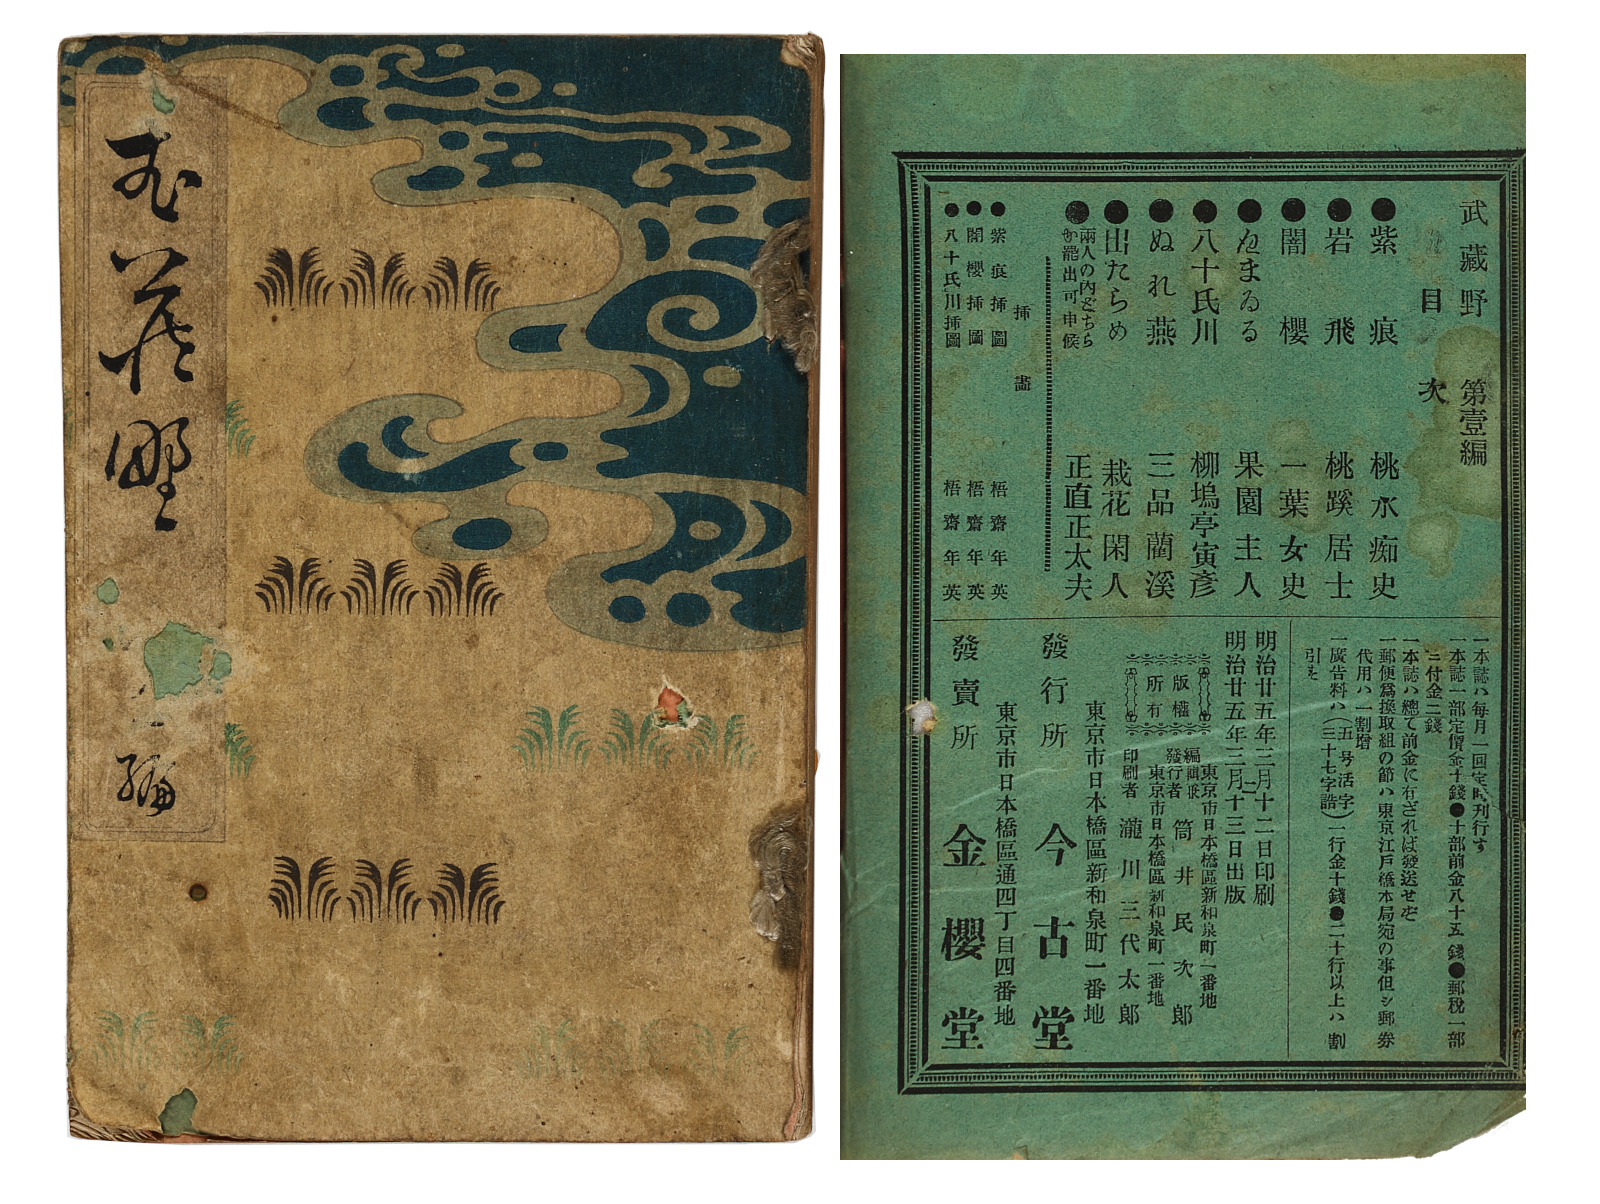 武蔵野
一編
武藏野　第壹編
目次
●紫痕　桃水痴史
●岩飛　桃蹊居士
●闇櫻　一葉女史
●ゐまゐる　果園主人
●八十氏川　柳塢亭寅彦
●ぬれ燕　三品藺溪
●出たらめ　栽花閑人
●兩人の内どちらか罷出可申候　正直正太夫
挿畫
●紫痕挿圖　梧齋年英
●闇櫻挿圖　梧齋年英
●八十氏川挿圖　梧齋年英
一本誌ハ每月一回定時刊行す
一本誌一部定價金十錢●十部前金八十五錢●郵稅一部
ニ付金二錢
一本誌ハ總て前金に有ざれば發送せず
一郵便爲換取組の節ハ東京江戸橋本局宛の事但シ郵券
代用ハ一割增
一廣告料ハ（五号活字）（三十七字詰）一行金十錢●二十行以上ハ割
引を
明治廿五年三月十二日印刷
明治廿五年三月二十三日出版
版權所有
東京市日本橋區新和泉町一番地
編輯兼發行者　筒井民次郎
東京市日本橋區新和泉町一番地
印刷者　瀧川三代太郎
東京市日本橋區新和泉町一番地
發行所　今古堂
東京市日本橋區通四丁目四番地
發賣所　金櫻堂